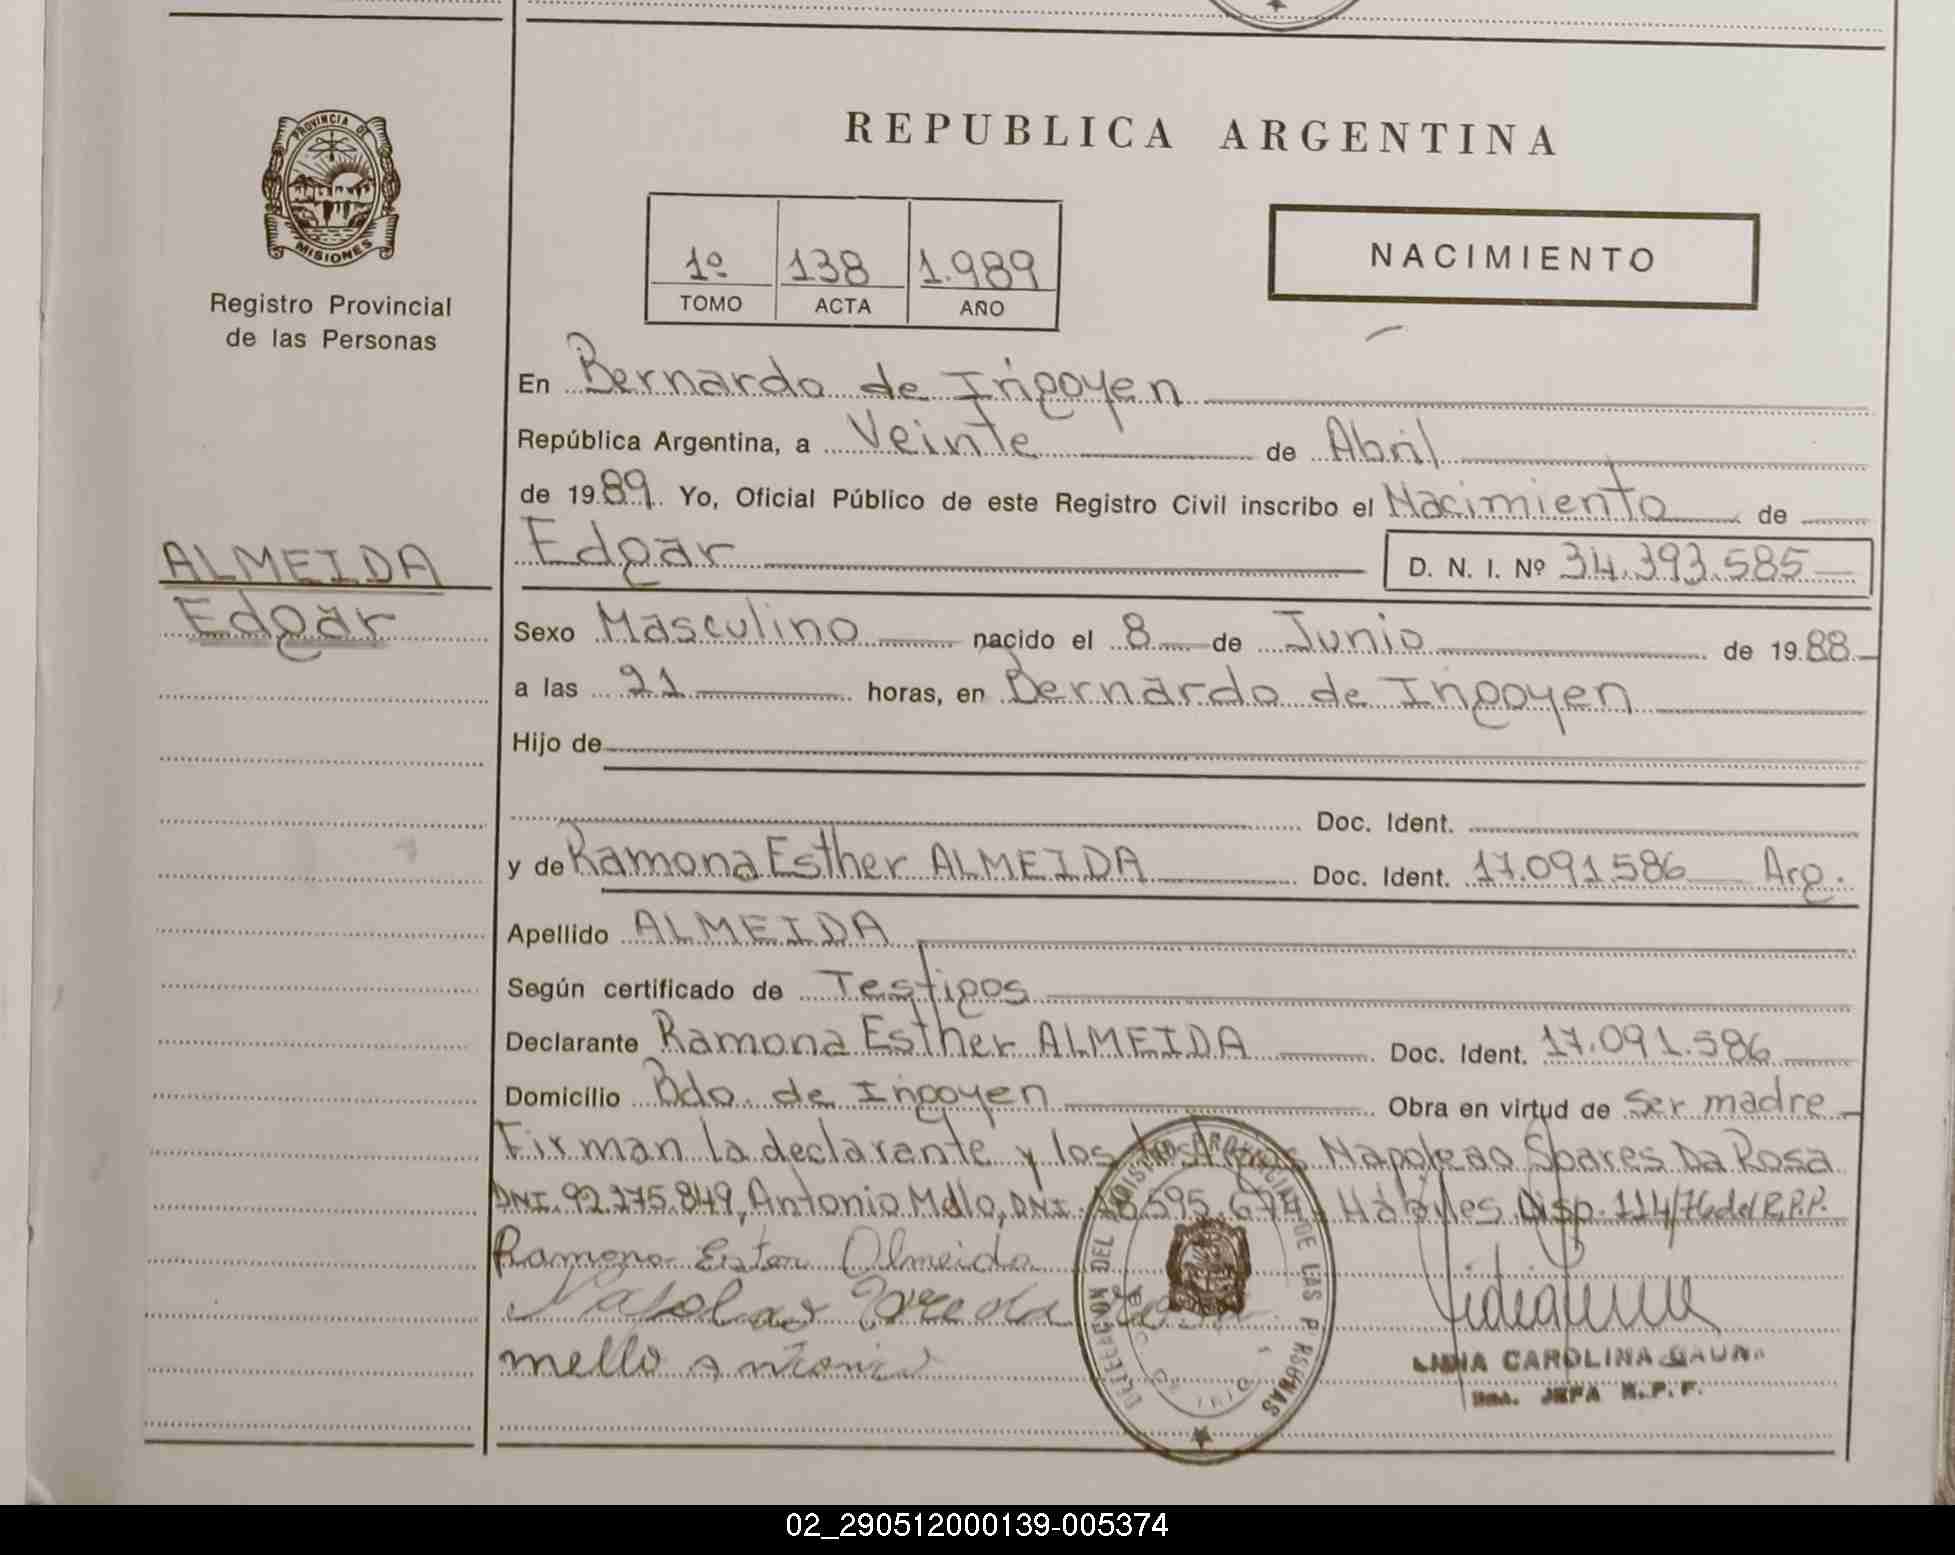 PROVINCIA DE
MISIONES
Registro Provincial
de las Personas
ALMEIDA
Edgar
REPUBLICA ARGENTINA
1º 138 1.989
TOMO ACTA AÑO
NACIMIENTO
En Bernardo de Irigoyen
República Argentina, a Veinte de Abril
de 1989. Yo, Oficial Público de este Registro Civil inscribo el Nacimiento de
Edgar D. N. I. Nº 34.393.585
Sexo Masculino nacido el 8 de Junio de 1988
a las 21 horas, en Bernardo de Irigoyen
Hijo de
Doc. Ident.
y de Ramona Esther ALMEIDA Doc. Ident. 17.091.586 Arg.
Apellido ALMEIDA
Según certificado de Testigos
Declarante Ramona Esther ALMEIDA Doc. Ident. 17.091.586
Domicilio Bdo. de Irigoyen Obra en virtud de ser madre
Firman la declarante y los testigos Napoleao Soares Da Rosa
DNI. 92.275.849, Antonio Mello, DNI. 595.674 Hábiles Disp. 114/76 del R.P.P.
Ramona Ester Almeida
mello Antonio
LIDIA CAROLINA GAUNA
JEFA R.P.P.
02_290512000139-005374